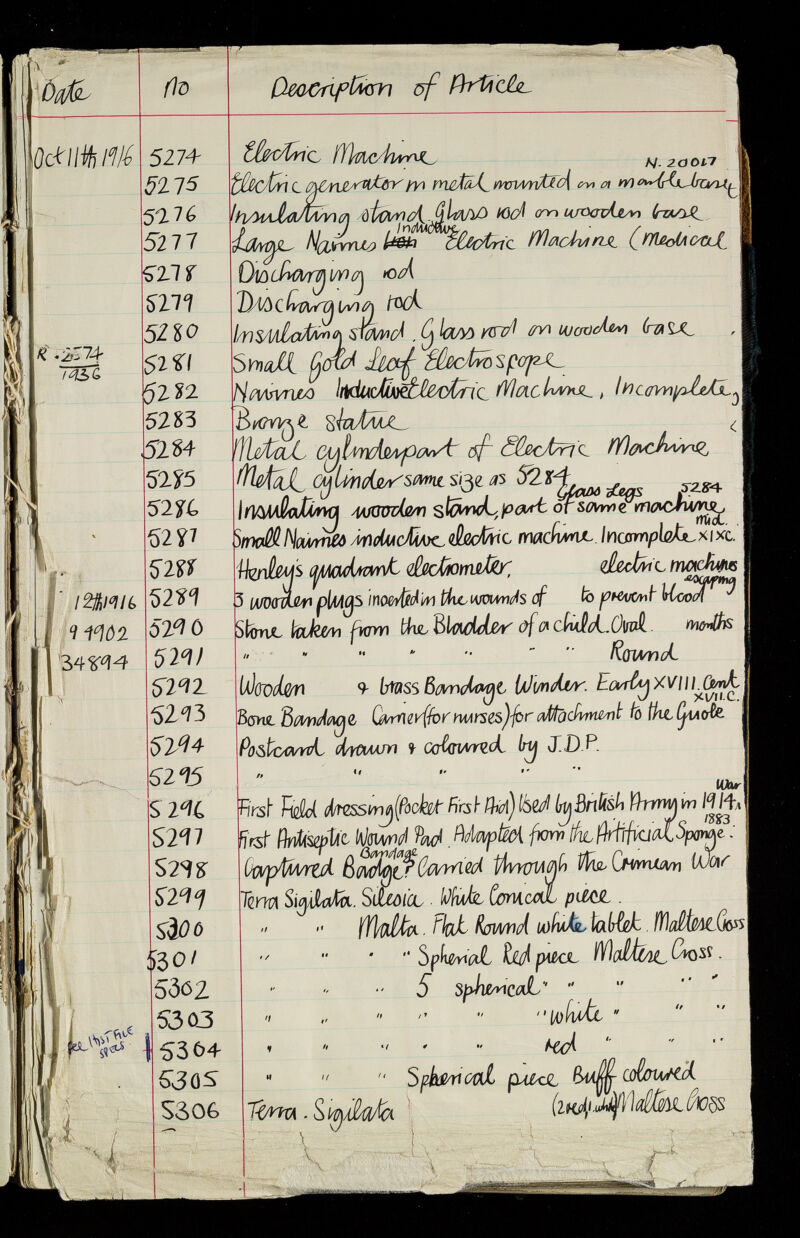 Date no Description of Article
Oct 11th 1916 5274 Electric Machine N. 20017
5275 Electric generator in metal mounted on a marble base
5276 Insulating stand. Glass rod on wooden base
5277 Large Nairnes Inductive Electric Machine (Medical
5278 Discharging rod
5279 Discharging rod
5280 Insulating stand. Glass rod on wooden base
R. 2574/1936 5281 Small Gold Leaf Electroscope
5282 Nairnes Inductive Electric Machine, Incomplete,
5283 Bronze statue
5284 Metal cylinder part of Electric Machine
5285 Metal cylinder same size as 5284
5286 Insulating wooden stand, Glass Legs part of same machine 5284
5287 Small Nairnes inductive electric machine. Incomplete Mid. XIXC.
5288 Henley's quadrant electrometer, electric machines
12th 1916 5289 3 wooden plugs inserted in the wounds of to prevent blood escaping
94902 5290 Stone taken from the Bladder of a child. Oval. months
34894 5291 " " " " " " " Round
5292 Wooden & brass Bandage Winder. Early XVIII. Cent
5293 Bone Bandage Carrier (for nurses) for attachment to the Girdle XVII.C.
5294 Postcard drawn & coloured by J.D.P.
5295 " " " " "
5296 First Field dressing (Pocket First Aid) Used by British Army in 1914. War
5297 First Antiseptic Wound Pad. Adapted from the Artificial Sponge. 1883
5298 Captured Badge? Bandage Carried through the Crimean War
5299 Terra Sigilata. Silesia. White Conical piece.
5300 " " Malta. Flat Round white tablet. Maltese Cross
5301 " " " " Spherial Red piece Maltese Cross.
5302 " " " 5 spherical " " " " "
5303 " " " " " " white " " "
See Hist File 5304 " " " " " red " " "
5305 " " " Spherical piece Buff coloured
5306 Terra. Sigilata (2 red, 1 white) Maltese Cross